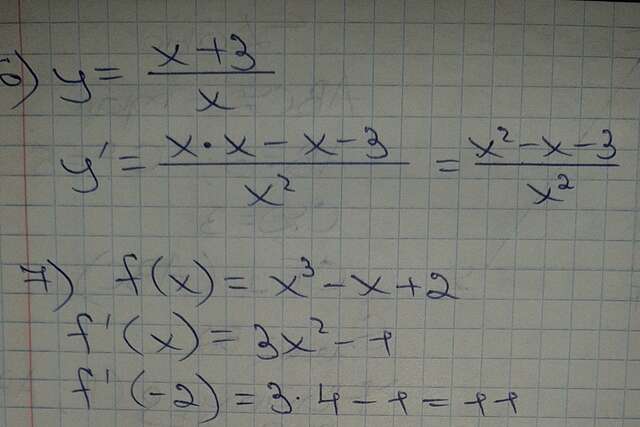 6) y = (x + 3)/x
y' = (x · x - x - 3)/x² = (x² - x - 3)/x²
7) f(x) = x³ - x + 2
f'(x) = 3x² - 1
f'(-2) = 3 · 4 - 1 = 11